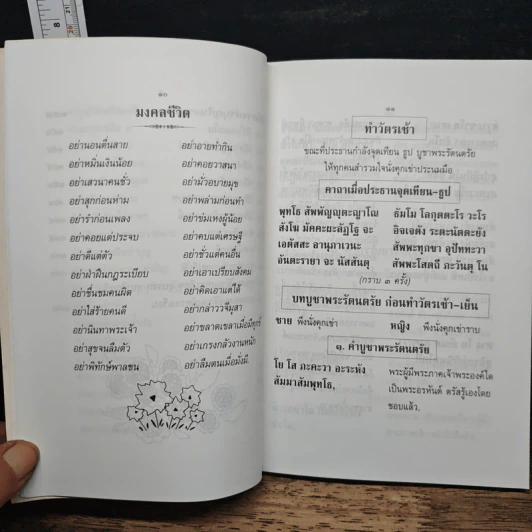 ๑๐
มงคลชีวิต
อย่านอนตื่นสาย
อย่าอายทำกิน
อย่าหมิ่นเงินน้อย
อย่าคอยวาสนา
อย่าเสวนาคนชั่ว
อย่ามั่วอบายมุข
อย่าสุกก่อนห่าม
อย่าพล่ามก่อนทำ
อย่ารำก่อนเพลง
อย่าข่มเหงผู้น้อย
อย่าคอยแต่ประจบ
อย่าคบแต่เศรษฐี
อย่าดีแต่ตัว
อย่าชั่วแต่คนอื่น
อย่าฝ่าฝืนกฎระเบียบ
อย่าเอาเปรียบสังคม
อย่าชื่นชมคนผิด
อย่าคิดเอาแต่ได้
อย่าใส่ร้ายคนดี
อย่ากล่าววจีมุสา
อย่านินทาพระเจ้า
อย่าขลาดเขลาเมื่อมีทุกข์
อย่าสุขจนลืมตัว
อย่าเกรงกลัวงานหนัก
อย่าพิทักษ์พาลชน
อย่าลืมตนเมื่อมั่งมี.
๑๑
ทำวัตรเช้า
ขณะที่ประธานกำลังจุดเทียน ธูป บูชาพระรัตนตรัย
ให้ทุกคนสำรวมใจนั่งคุกเข่าประนมมือ
คาถาเมื่อประธานจุดเทียน-ธูป
พุทโธ สัพพัญญุตะญาโณ ธัมโม โลกุตตะโร วะโร
สังโฆ มัคคะผะลัฏโฐ จะ อิจเจตัง ระตะนัตตะยัง
เอตัสสะ อานุภาเวนะ สัพพะทุกขา อุปัททะวา
อันตะรายา จะ นัสสันตุ สัพพะโสตถี ภะวันตุ โน
(กราบ ๓ ครั้ง)
บทบูชาพระรัตนตรัย ก่อนทำวัตรเช้า-เย็น
ชาย พึงนั่งคุกเข่า หญิง พึงนั่งคุกเข่าราบ
๑. คำบูชาพระรัตนตรัย
โย โส ภะคะวา อะระหัง
สัมมาสัมพุทโธ,
พระผู้มีพระภาคเจ้าพระองค์ใด
เป็นพระอรหันต์ ตรัสรู้เองโดย
ชอบแล้ว.